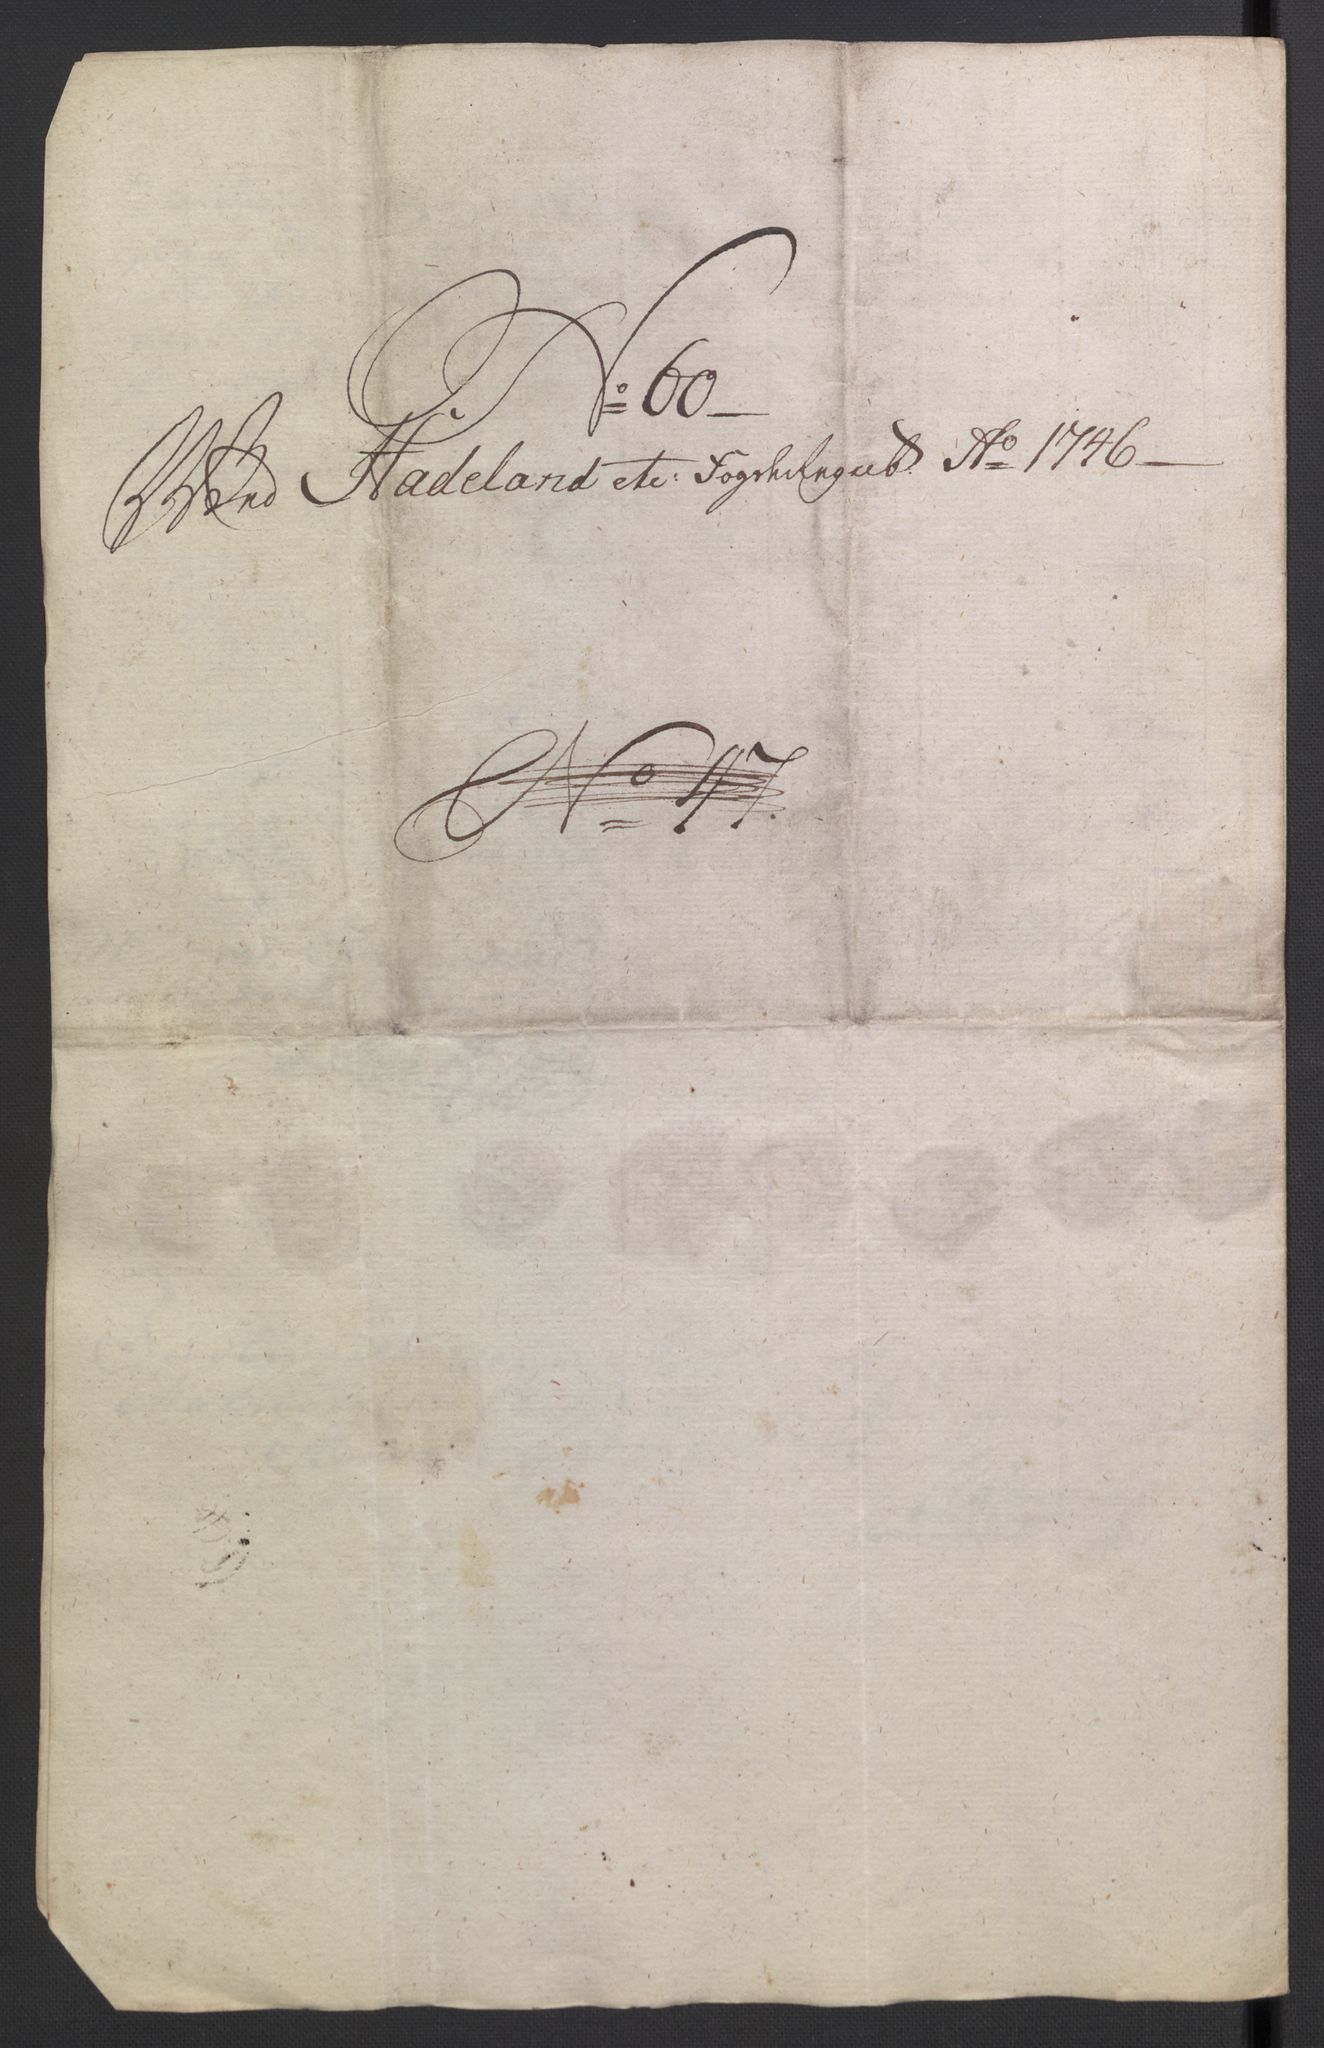 No 60
Wed Hadeland etc: Fogderiregnsk: Ao 1746
No 47.